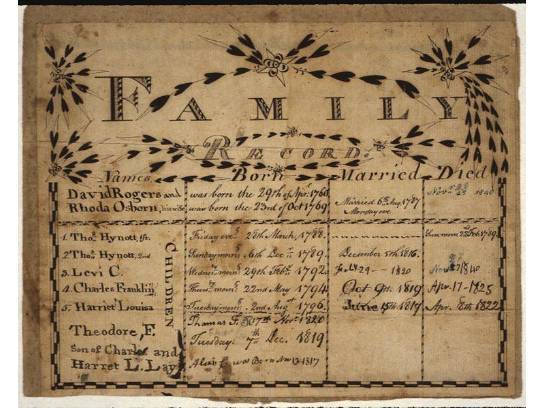 FAMILY
RECORD.
Names Born Married Died
David Rogers and was born the 29th of Apr. 1760
Rhoda Osborn, his wife was born the 23rd of Oct 1769 Married 6th Aug 1787 Nov. 1840
Monday eve
CHILDREN
1. Thos. Hynott, 1st. Friday eve 28th March, 1788. 1789.
2. Thos. Hynott, 2nd Sunday morn 6th Dec. 1789. December 5th 1816.
3. Levi C. 29th Feby. 1792. July 29 1820 1840
4. Charles Franklin 22nd May 1794 Oct 9th. 1819 Apr. 17 1825
5. Harriet Louisa Tuesday morn 2nd Augt 1796. June 15th 1817 Apr. 8th 1822
Thomas F. 17th Novr. 1820
Theodore, F. Tuesday 7th Dec. 1819
Son of Charles and
Harriet L. Lay was Born Nov 13 1817